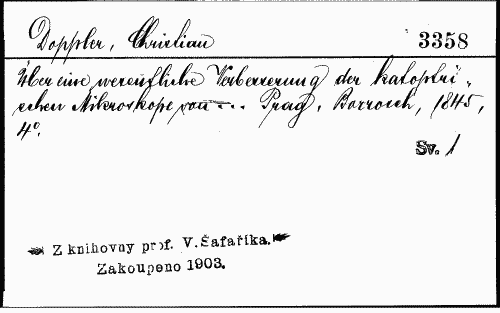 Doppler, Christian 3358
Über eine wesentliche Verbesserung der katoptri-
schen Mikroskope von ... Prag, Borrosch, 1845,
4°.
Sv. 1
Z knihovny prof. V. Šafaříka.
Zakoupeno 1903.